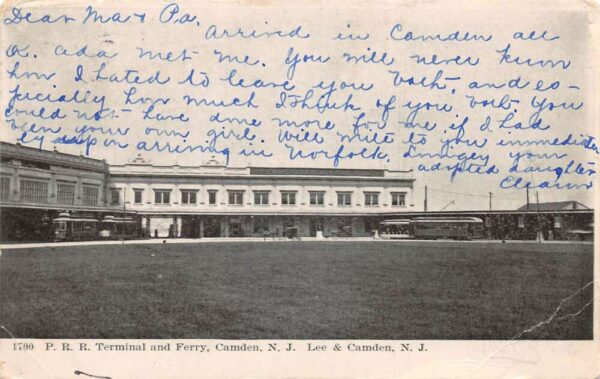 Dear Ma & Pa.
Arrived in Camden all
O. Ada met me. You will never know
how I hated to leave you both, and es-
pecially how much I think of you both. You
could not have done more for me if I had
been your own girl. Will write to you immediate
ly upon arriving in Norfolk. your
adopted daughter
1700 P. R. R. Terminal and Ferry, Camden, N. J. Lee & Camden, N. J.